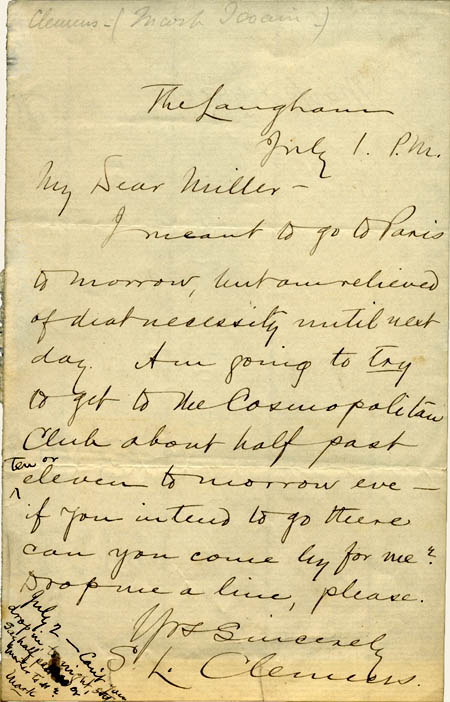 Clemens - (Mark Twain -)
The Langham
July 1. P.M.
My Dear Miller -
I meant to go to Paris
to morrow, but am relieved
of that necessity until next
day. Am going to try
to get to the Cosmopolitan
Club about half past
Ten or
eleven to morrow eve —
if you intend to go there
can you come by for me?
Drop me a line, please.
Yrs Sincerely
S. L. Clemens.
July 2 — Can't you
drop in to-night,
half past
quarter to 11?
Mark